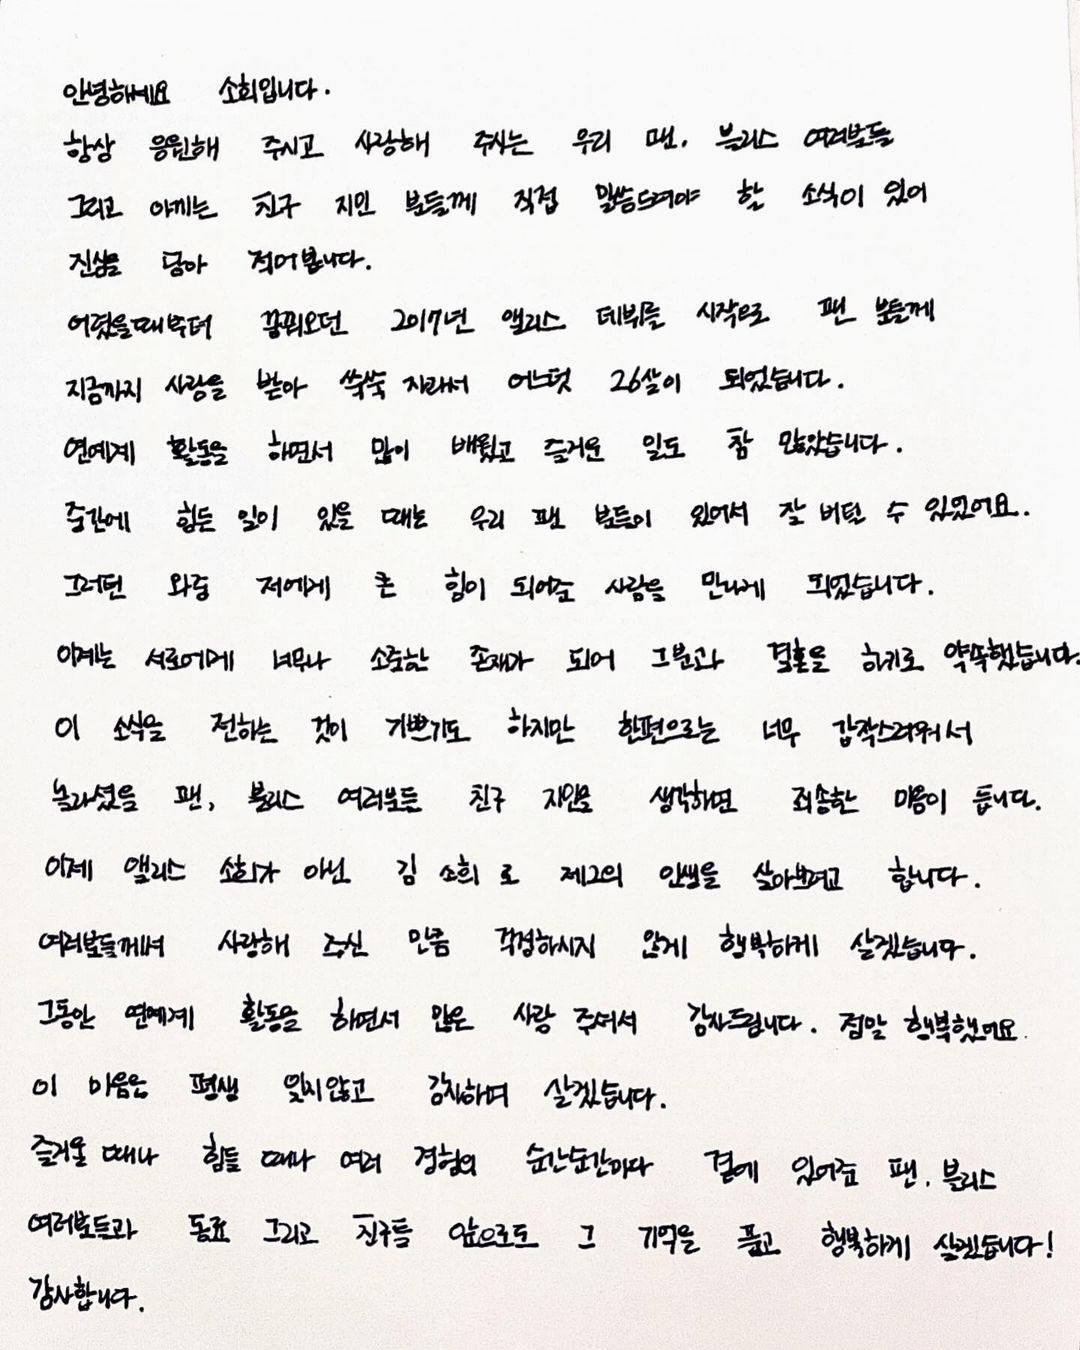 안녕하세요 소희입니다.
항상 응원해 주시고 사랑해 주시는 우리 팬, 블리스 여러분들
그리고 아끼는 친구 지인 분들께 직접 말씀드려야 할 소식이 있어
진심을 담아 적어봅니다.
어렸을때부터 꿈꿔오던 2017년 앨리스 데뷔를 시작으로 팬 분들께
지금까지 사랑을 받아 쑥쑥 자라서 어느덧 26살이 되었습니다.
연예계 활동을 하면서 많이 배웠고 즐거운 일도 참 많았습니다.
중간에 힘든 일이 있을 때는 우리 팬 분들이 있어서 잘 버틸 수 있었어요..
그러던 와중 저에게 큰 힘이 되어준 사람을 만나게 되었습니다.
이제는 서로에게 너무나 소중한 존재가 되어 그분과 결혼을 하기로 약속했습니다.
이 소식을 전하는 것이 기쁘기도 하지만 한편으로는 너무 갑작스러워서
놀라셨을 팬, 블리스 여러분들 친구 지인을 생각하면 죄송한 마음이 듭니다.
이제 앨리스 소희가 아닌 김소희로 제2의 인생을 살아보려고 합니다.
여러분들께서 사랑해 주신 만큼 걱정하시지 않게 행복하게 살겠습니다.
그동안 연예계 활동을 하면서 많은 사랑 주셔서 감사드립니다. 정말 행복했어요.
이 마음은 평생 잊지않고 감사하며 살겠습니다.
즐거울 때나 힘들 때나 여러 경험의 순간순간마다 곁에 있어준 팬, 블리스
여러분들과 동료 그리고 친구들 앞으로도 그 기억을 품고 행복하게 살겠습니다!
감사합니다.